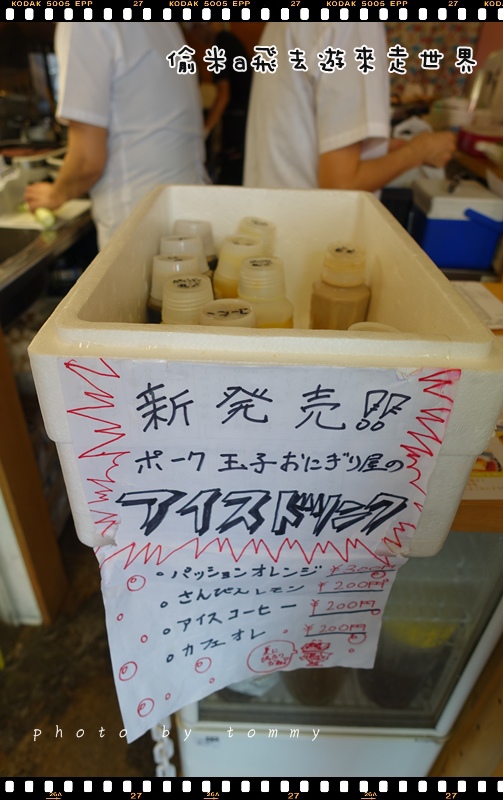 KODAK 5005 EPP 27 KODAK 5005 EPP 27 KODAK 5005 EPP 27 KODAK 5005 EPP
偷米a飛去遊來走世界
新発売!!
ポーク玉子おにぎり屋の
アイスドリンク
。パッションオレンジ ¥300円
。さんぴんレモン ¥200円
。アイスコーヒー ¥200円
。カフェオレ ¥200円
photo by tommy
26A 27 26A 27 26A 27